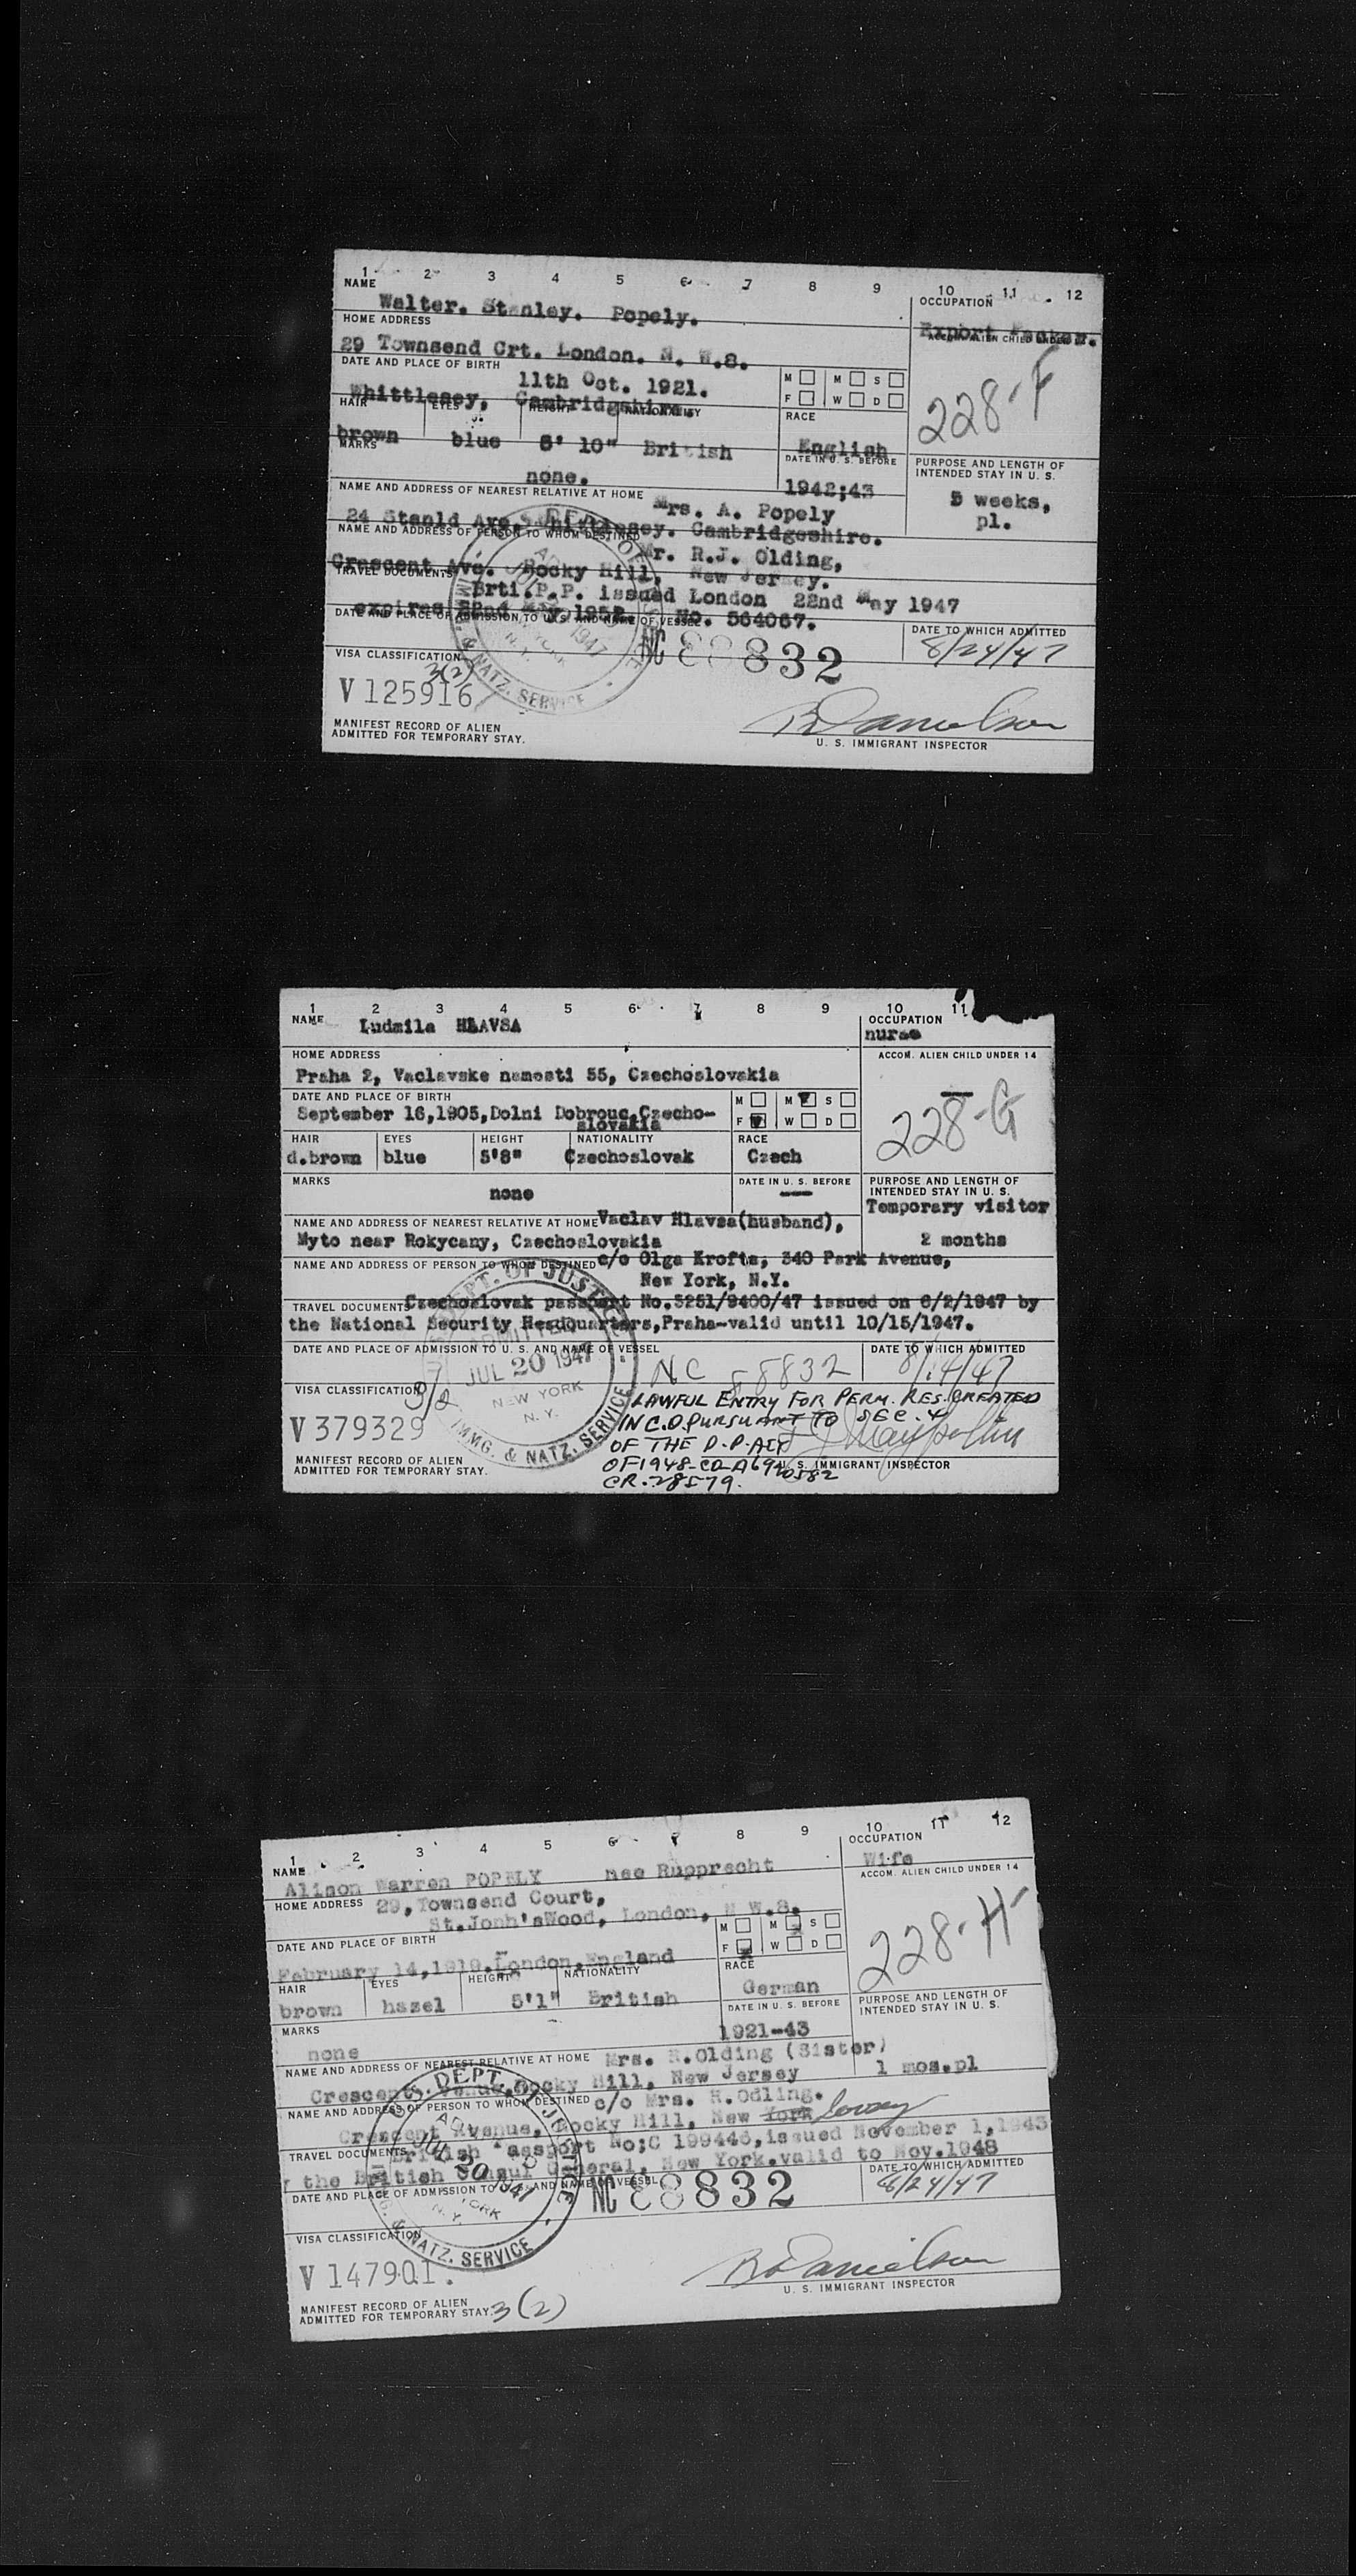 1 2 3 4 5 6 7 8 9 10 11 12
NAME
OCCUPATION
Walter. Stanley. Popely.
Export Packer.
HOME ADDRESS
ACCOM. ALIEN CHILD UNDER 14
29 Townsend Crt. London. N. W.8.
DATE AND PLACE OF BIRTH
11th Oct. 1921.
M M S
F W D
Whittlesey, Cambridgshire.
228-F
HAIR EYES HEIGHT NATIONALITY
RACE
brown blue 5' 10" British
English
MARKS
none.
DATE IN U. S. BEFORE
1942;43
PURPOSE AND LENGTH OF
INTENDED STAY IN U. S.
5 weeks,
pl.
NAME AND ADDRESS OF NEAREST RELATIVE AT HOME Mrs. A. Popely
24 Stanld Ave. Whittlesey. Cambridgeshire.
NAME AND ADDRESS OF PERSON TO WHOM DESTINED Mr. R.J. Olding,
Crescent Ave. Rocky Hill, New Jersey.
TRAVEL DOCUMENTS Brti.P.P. issued London 22nd May 1947
expires 22nd May 1952. No. 564067.
DATE AND PLACE OF ADMISSION TO U. S. AND NAME OF VESSEL
DATE TO WHICH ADMITTED
NC 88832
8/24/47
VISA CLASSIFICATION
3(2)
V 125916
MANIFEST RECORD OF ALIEN
ADMITTED FOR TEMPORARY STAY.
B Danielson
U. S. IMMIGRANT INSPECTOR
1 2 3 4 5 6 7 8 9 10 11
NAME Ludmila HLAVSA
OCCUPATION
nurse
HOME ADDRESS
ACCOM. ALIEN CHILD UNDER 14
Praha 2, Vaclavske namesti 55, Czechoslovakia
DATE AND PLACE OF BIRTH
M M S
F W D
September 16,1905,Dolni Dobrouc,Czecho-
slovakia
228-G
HAIR EYES HEIGHT NATIONALITY RACE
d.brown blue 5'8" Czechoslovak Czech
MARKS
none
DATE IN U. S. BEFORE
PURPOSE AND LENGTH OF
INTENDED STAY IN U. S.
Temporary visitor
2 months
NAME AND ADDRESS OF NEAREST RELATIVE AT HOME Vaclav Hlavsa(husband),
Myto near Rokycany, Czechoslovakia
NAME AND ADDRESS OF PERSON TO WHOM DESTINED c/o Olga Krofta, 340 Park Avenue,
New York, N.Y.
TRAVEL DOCUMENTS Czechoslovak passport No.5251/9400/47 issued on 6/2/1947 by
the National Security Headquarters,Praha-valid until 10/15/1947.
DATE AND PLACE OF ADMISSION TO U. S. AND NAME OF VESSEL
DATE TO WHICH ADMITTED
U.S. DEPT. OF JUSTICE
ADMITTED
JUL 20 1947
NEW YORK
N. Y.
IMMG. & NATZ. SERVICE
NC 88832
8/14/47
VISA CLASSIFICATION
3/2
V 379329
LAWFUL ENTRY FOR PERM. RES. CREATED
IN C.O. PURSUANT TO SEC. 4
OF THE D.P. ACT
OF 1948-CO-A6920582
CR. 28579.
U. S. IMMIGRANT INSPECTOR
MANIFEST RECORD OF ALIEN
ADMITTED FOR TEMPORARY STAY.
1 2 3 4 5 6 7 8 9 10 11 12
NAME
OCCUPATION
Alison Warren POPELY nee Rupprecht
Wife
HOME ADDRESS 29,Townsend Court,
ACCOM. ALIEN CHILD UNDER 14
St.Jonh'sWood, London, N W.8.
DATE AND PLACE OF BIRTH
M M S
F W D
February 14,1919.London,England
228-H
HAIR EYES HEIGHT NATIONALITY
RACE
brown hazel 5'1" British
German
MARKS
none
DATE IN U. S. BEFORE
1921-43
PURPOSE AND LENGTH OF
INTENDED STAY IN U. S.
1 mos.pl
NAME AND ADDRESS OF NEAREST RELATIVE AT HOME Mrs. R.Olding (Sister)
Crescent Avenue,Rocky Hill, New Jersey
NAME AND ADDRESS OF PERSON TO WHOM DESTINED c/o Mrs. R.Odling.
Crescent Avenue, Rocky Hill, New York Jersey
TRAVEL DOCUMENTS British Passport No;C 199446,issued November 1,1943
y the British Consul General, New York.valid to Nov.1948
DATE AND PLACE OF ADMISSION TO U. S. AND NAME OF VESSEL
DATE TO WHICH ADMITTED
NC 88832
8/24/47
VISA CLASSIFICATION
V 147901.
MANIFEST RECORD OF ALIEN
ADMITTED FOR TEMPORARY STAY. 3(2)
B Danielson
U. S. IMMIGRANT INSPECTOR